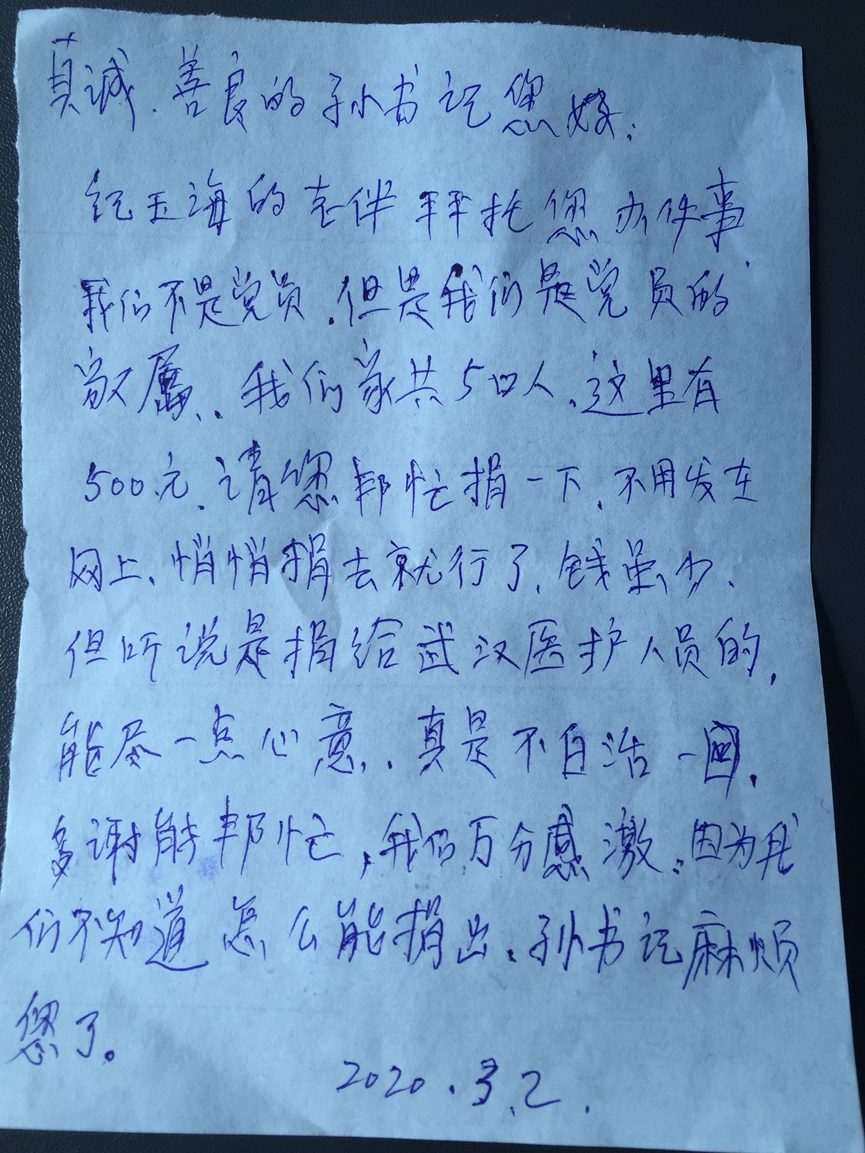 真诚.善良的孙书记您好:
记玉海的老伴拜托您办件事
我们不是党员.但是我们是党员的
家属.我们家共5口人.这里有
500元.请您帮忙捐一下.不用发在
网上.悄悄捐去就行了.钱虽少.
但听说是捐给武汉医护人员的,
能尽一点心意.真是不白活一回.
多谢能帮忙,我们万分感激.因为我
们不知道怎么能捐出.孙书记麻烦
您了。
2020.3.2.